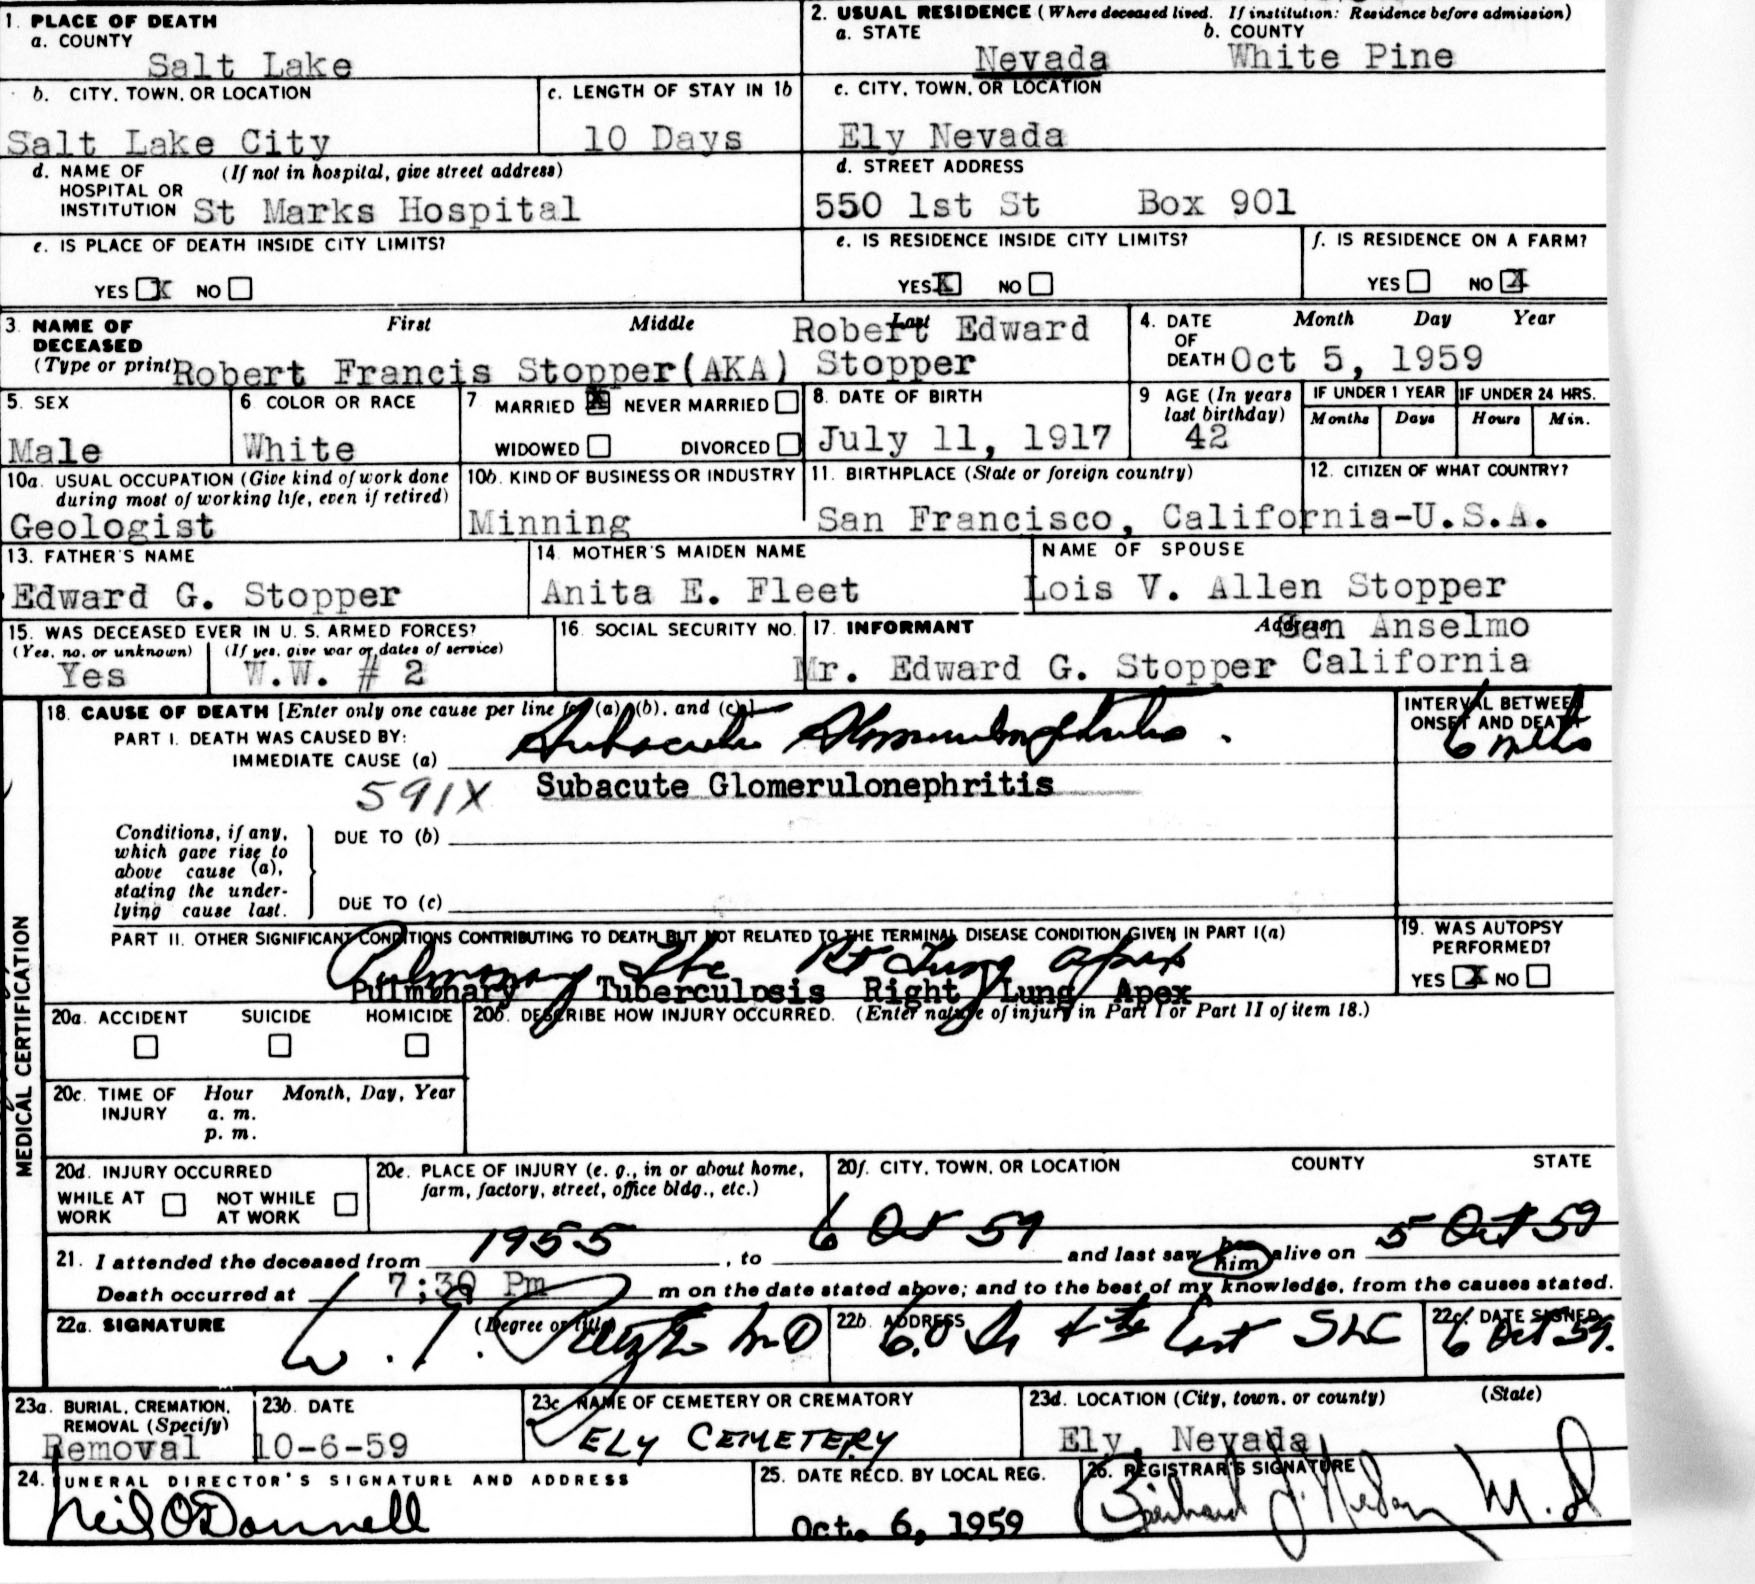 1. PLACE OF DEATH
a. COUNTY
Salt Lake
2. USUAL RESIDENCE (Where deceased lived. If institution: Residence before admission)
a. STATE
Nevada
b. COUNTY
White Pine
b. CITY, TOWN, OR LOCATION
Salt Lake City
c. LENGTH OF STAY IN 1b
10 Days
c. CITY, TOWN, OR LOCATION
Ely Nevada
d. NAME OF HOSPITAL OR INSTITUTION (If not in hospital, give street address)
St Marks Hospital
d. STREET ADDRESS
550 1st St Box 901
e. IS PLACE OF DEATH INSIDE CITY LIMITS?
YES X NO
e. IS RESIDENCE INSIDE CITY LIMITS?
YES X NO
f. IS RESIDENCE ON A FARM?
YES NO X
3. NAME OF DECEASED
(Type or print)
First Middle Last
Robert Francis Stopper(AKA) Robert Edward Stopper
4. DATE OF DEATH
Month Day Year
Oct 5, 1959
5. SEX
Male
6 COLOR OR RACE
White
7 MARRIED X NEVER MARRIED
WIDOWED DIVORCED
8. DATE OF BIRTH
July 11, 1917
9 AGE (In years last birthday)
42
IF UNDER 1 YEAR
Months Days
IF UNDER 24 HRS.
Hours Min.
10a. USUAL OCCUPATION (Give kind of work done during most of working life, even if retired)
Geologist
10b. KIND OF BUSINESS OR INDUSTRY
Minning
11. BIRTHPLACE (State or foreign country)
12. CITIZEN OF WHAT COUNTRY?
San Francisco, California-U.S.A.
13. FATHER'S NAME
Edward G. Stopper
14 MOTHER'S MAIDEN NAME
Anita E. Fleet
NAME OF SPOUSE
Lois V. Allen Stopper
15. WAS DECEASED EVER IN U. S. ARMED FORCES?
(Yes, no, or unknown) (If yes, give war or dates of service)
Yes W.W. # 2
16. SOCIAL SECURITY NO.
17. INFORMANT Address
Mr. Edward G. Stopper San Anselmo California
MEDICAL CERTIFICATION
18. CAUSE OF DEATH [Enter only one cause per line for (a), (b), and (c).]
PART I. DEATH WAS CAUSED BY:
IMMEDIATE CAUSE (a) Subacute Glomerulonephritis.
591X Subacute Glomerulonephritis
INTERVAL BETWEEN ONSET AND DEATH
Conditions, if any, which gave rise to above cause (a), stating the underlying cause last.
DUE TO (b)
DUE TO (c)
PART II. OTHER SIGNIFICANT CONDITIONS CONTRIBUTING TO DEATH BUT NOT RELATED TO THE TERMINAL DISEASE CONDITION GIVEN IN PART I(a)
Pulmonary Tbc Rt Lung apex
Pulminary Tuberculosis Right Lung Apex
19. WAS AUTOPSY PERFORMED?
YES X NO
20a. ACCIDENT SUICIDE HOMICIDE
20b. DESCRIBE HOW INJURY OCCURRED. (Enter nature of injury in Part I or Part II of item 18.)
20c. TIME OF INJURY
Hour Month, Day, Year
a. m.
p. m.
20d. INJURY OCCURRED
WHILE AT WORK NOT WHILE AT WORK
20e. PLACE OF INJURY (e. g., in or about home, farm, factory, street, office bldg., etc.)
20f. CITY, TOWN, OR LOCATION COUNTY STATE
21. I attended the deceased from 1955, to 6 Oct 59 and last saw her him alive on 5 Oct 59
Death occurred at 7;30 Pm m on the date stated above; and to the best of my knowledge, from the causes stated.
22a. SIGNATURE (Degree or title)
MD
22b. ADDRESS
4th East SLC
22c. DATE SIGNED
6 Oct 59.
23a. BURIAL, CREMATION, REMOVAL (Specify)
Removal
23b. DATE
10-6-59
23c. NAME OF CEMETERY OR CREMATORY
ELY CEMETERY
23d. LOCATION (City, town, or county) (State)
Ely, Nevada
24. FUNERAL DIRECTOR'S SIGNATURE AND ADDRESS
Neil O'Donnell
25. DATE RECD. BY LOCAL REG.
Oct. 6, 1959
26. REGISTRAR'S SIGNATURE
M.D